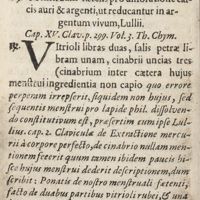 cis auri & argenti, ut reducantur in ar-
gentum vivum, Lullii.
Cap. XV. Clav. p. 299. Vol. 3. Th. Chym.
Vitrioli libras duas, salis petræ li-
bram unam, cinabrii uncias tres
(cinabrium inter cætera hujus
menstrui ingredientia non capio quo errore
perperam irrepserit, siquidem non hujus, sed
sequentis menstrui pro lapide phil. dissolven-
do constitutivum est, præsertim cum ipse Lul-
lius. cap. 2. Claviculæ de Extractione mercu-
rii à corpore perfecto, de cinabrio nullam men-
tionem quem tamen ibidem paucis hi-
sce hujus menstrui dederit descriptionem, dum
scribit: Ponatis de nostro menstruali fætenti,
facto de duabus partibus vitrioli rubei, & una